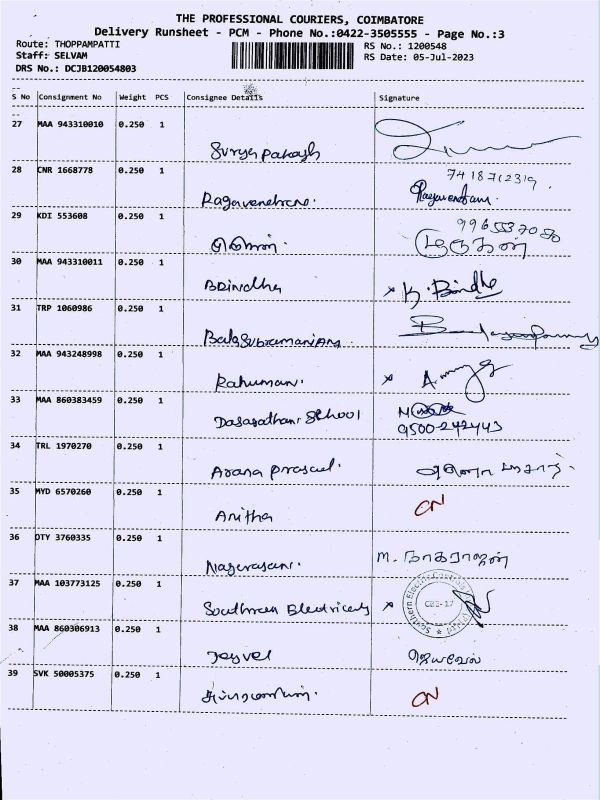 THE PROFESSIONAL COURIERS, COIMBATORE
Delivery Runsheet - PCM - Phone No.:0422-3505555 - Page No.:3
Route: THOPPAMPATTI RS No.: 1200548
Staff: SELVAM RS Date: 05-Jul-2023
DRS No.: DCJB120054803
S No Consignment No Weight PCS Consignee Details Signature
27 MAA 943310010 0.250 1
Surya pakash
28 CNR 1668778 0.250 1 7418712319.
Ragavenehrane. Ragavendran
29 KDI 553608 0.250 1 9965537080
முருகன்
30 MAA 943310011 0.250 1
BRindha x K. Bindhe
31 TRP 1060986 0.250 1
Balasubramaniyam.
32 MAA 943248998 0.250 1
Rahuman. x
33 MAA 860383459 0.250 1
Dasarathan School 9500-242443
34 TRL 1970270 0.250 1
Arana prasad.
35 MYD 6570260 0.250 1 CN
Anitha
36 DTY 3760335 0.250 1
Nagarasan. M. நாகராஜன்
37 MAA 103773125 0.250 1
Southren Electricals x CBE-17
38 MAA 860306913 0.250 1
Jeyvel ஜெயவேல்
39 SVK 50005375 0.250 1 CN